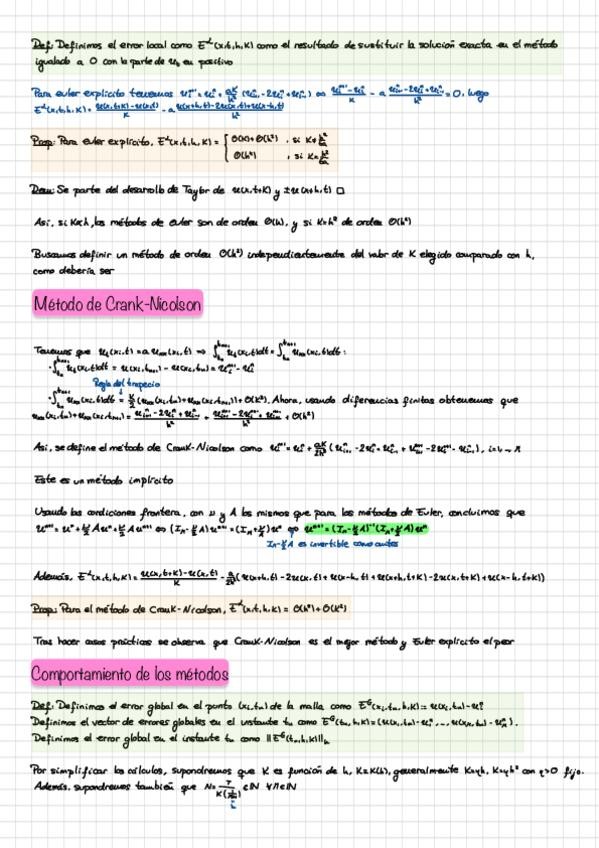 Def: Definimos el error local como E^L(x,t,h,K) como el resultado de sustituir la solución exacta en el método
igualado a 0 con la parte de u_t en positivo
Para euler explícito tenemos u_i^{n+1} = u_i^n + aK/h² (u_{i+1}^n - 2u_i^n + u_{i-1}^n) ⇔ (u_i^{n+1} - u_i^n)/K - a (u_{i+1}^n - 2u_i^n + u_{i-1}^n)/h² = 0, luego
E^L(x,t,h,K) = (u(x,t+K) - u(x,t))/K - a (u(x+h,t) - 2u(x,t) + u(x-h,t))/h²
Prop: Para euler explícito, E^L(x,t,h,K) = { O(K) + O(h²) , si K≠h²/6a
O(h⁴) , si K=h²/6a
Dem: Se parte del desarrollo de Taylor de u(x,t+K) y u(x±h,t) □
Así, si K∝h, los métodos de Euler son de orden O(h), y si K=h² de orden O(h²)
Buscamos definir un método de orden O(h²) independientemente del valor de K elegido comparado con h,
como debería ser
Método de Crank-Nicolson
Tenemos que u_t(x_i,t) = a u_xx(x_i,t) ⇒ ∫ u_t(x_i,t)dt = ∫ u_xx(x_i,t)dt :
· ∫ u_t(x_i,t)dt = u(x_i,t_{n+1}) - u(x_i,t_n) = u_i^{n+1} - u_i^n
Regla del trapecio
· ∫ u_xx(x_i,t)dt = K/2 (u_xx(x_i,t_n) + u_xx(x_i,t_{n+1})) + O(K³). Ahora, usando diferencias finitas obtenemos que
u_xx(x_i,t_n) + u_xx(x_i,t_{n+1}) = (u_{i+1}^n - 2u_i^n + u_{i-1}^n)/h² + (u_{i+1}^{n+1} - 2u_i^{n+1} + u_{i-1}^{n+1})/h² + O(h²)
Así, se define el método de Crank-Nicolson como u_i^{n+1} = u_i^n + aK/2h² (u_{i+1}^n - 2u_i^n + u_{i-1}^n + u_{i+1}^{n+1} - 2u_i^{n+1} + u_{i-1}^{n+1}),
Este es un método implícito
Usando las condiciones frontera, con ν y A los mismos que para los métodos de Euler, concluimos que
u^{n+1} = u^n + ν/2 A u^n + ν/2 A u^{n+1} ⇔ (I_M - ν/2 A) u^{n+1} = (I_M + ν/2 A) u^n ⇔ u^{n+1} = (I_M - ν/2 A)^{-1} (I_M + ν/2 A) u^n
I_M - ν/2 A es invertible como antes
Además, E^L(x,t,h,K) = (u(x,t+K) - u(x,t))/K - a/2h² (u(x+h,t) - 2u(x,t) + u(x-h,t) + u(x+h,t+K) - 2u(x,t+K) + u(x-h,t+K))
Prop: Para el método de Crank-Nicolson, E^L(x,t,h,K) = O(h²) + O(K²)
Tras hacer casos prácticos se observa que Crank-Nicolson es el mejor método y Euler explícito el peor
Comportamiento de los métodos
Def: Definimos el error global en el punto (x_i,t_n) de la malla como E^G(x_i,t_n,h,K) = u(x_i,t_n) - u_i^n
Definimos el vector de errores globales en el instante t_n como E^G(t_n,h,K) =
Definimos el error global en el instante t_n como ||E^G(t_n,h,K)||_h
Por simplificar los cálculos, supondremos que K es función de h, K=K(h), generalmente K=γh, K=γh² con γ>0 fijo.
Además, supondremos también que N =